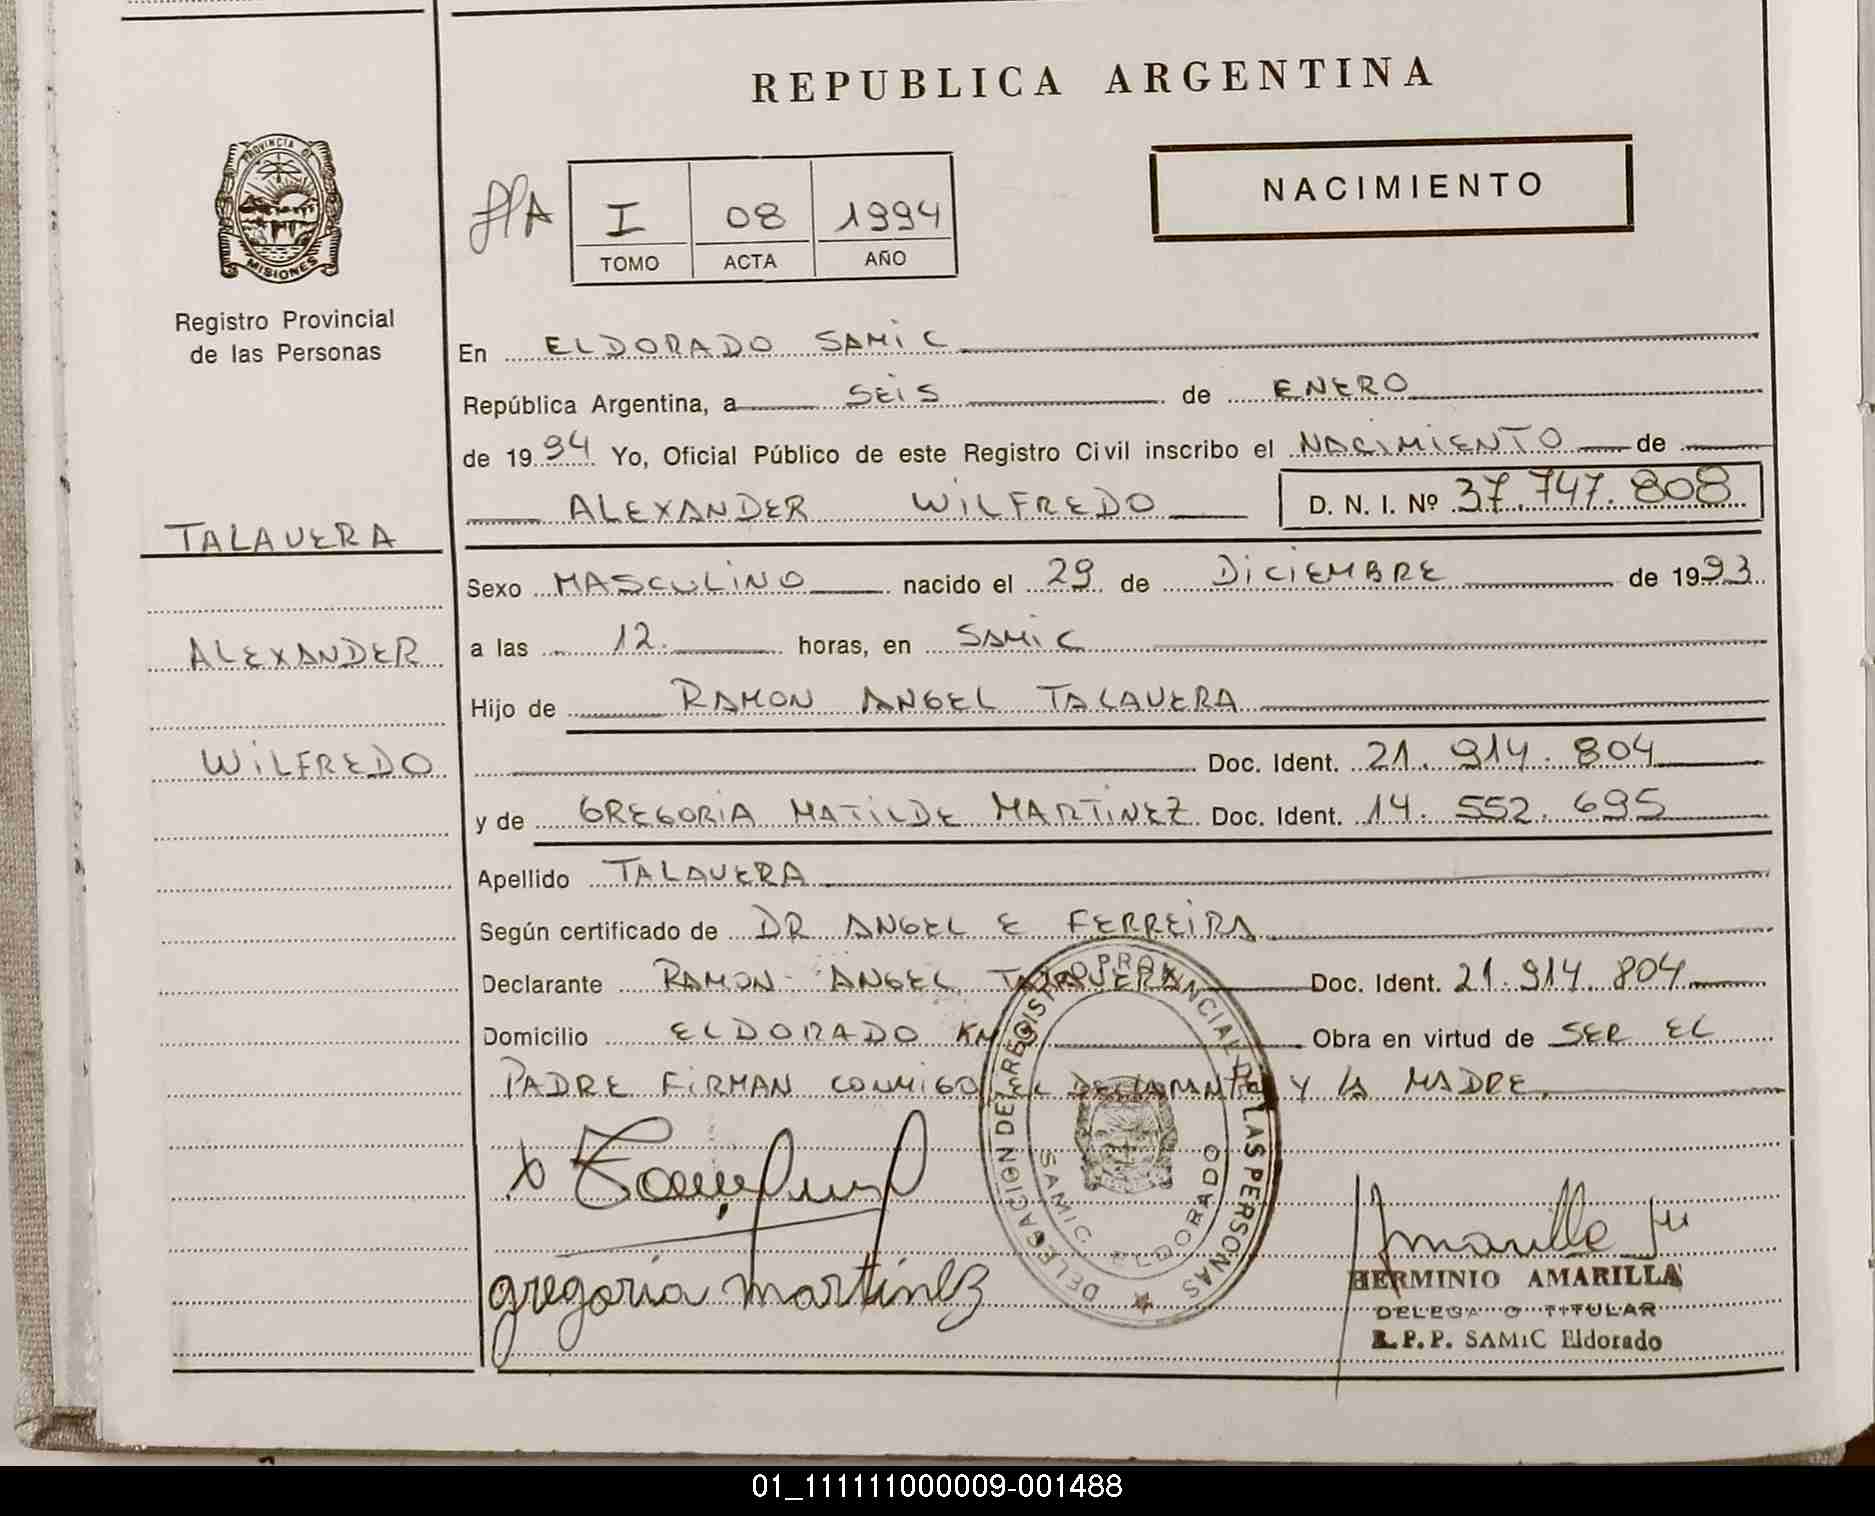 REPUBLICA ARGENTINA
PROVINCIA DE
MISIONES
Registro Provincial
de las Personas
I 08 1994
TOMO ACTA AÑO
NACIMIENTO
En ELDORADO SAMiC
República Argentina, a SEiS de ENERO
de 1994 Yo, Oficial Público de este Registro Civil inscribo el NACiMiENTO de
ALEXANDER WiLFREDO D. N. I. Nº 37.747.808
TALAVERA
ALEXANDER
WiLFREDO
Sexo MASCULiNO nacido el 29 de DiCiEMBRE de 1993
a las 12. horas, en SAMiC
Hijo de RAMON ANGEL TALAVERA
Doc. Ident. 21.914.804
y de GREGORiA MATiLDE MARTiNEZ Doc. Ident. 14.552.695
Apellido TALAVERA
Según certificado de DR ANGEL E FERREiRA
Declarante RAMON ANGEL TALAVERA Doc. Ident. 21.914.804
Domicilio ELDORADO KM 9 Obra en virtud de SER EL
PADRE FiRMAN CONMiGO EL DECLARANTE Y LA MADRE.
DELEGACION DEL REGISTRO PROVINCIAL DE LAS PERSONAS
SAMIC ELDORADO
gregoria martinez
HERMINIO AMARILLA
DELEGADO TITULAR
R.P.P. SAMiC Eldorado
01_111111000009-001488